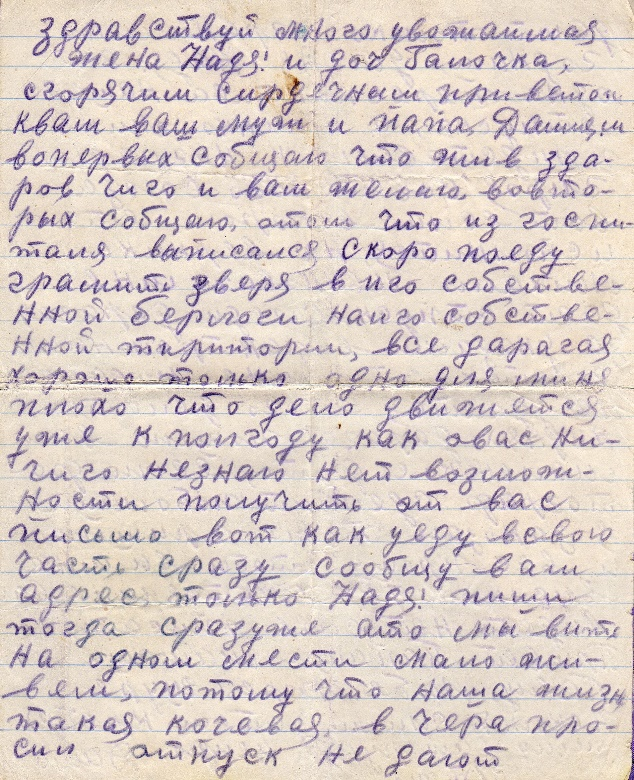 здравствуй много уважаимая
жена Надя! и доч Галочка,
сгорячим сирдечным приветом
квам ваш муж и папа,
вопервых собщаю что жив зда-
ров чиго и вам желаю, вовто-
рых собщаю, отом что из госпи-
таля выписался скоро поеду
грамить зверя в иго собстве-
нной берлоги наиго собстве-
нной тиритории, все дарагая
хорошо только одно для миня
плохо что дело движется
уже к полгоду как овас ни-
чиго незнаю нет возмож-
ности получить от вас
письмо вот как уеду всвою
часть сразу сообщу вам
адрес, только Надя! пиши
тогда сразуже ато мы вить
на одном мести мало жи-
вем, потому что наша жизнь
такая кочевая, в чера про-
сил отпуск не дают